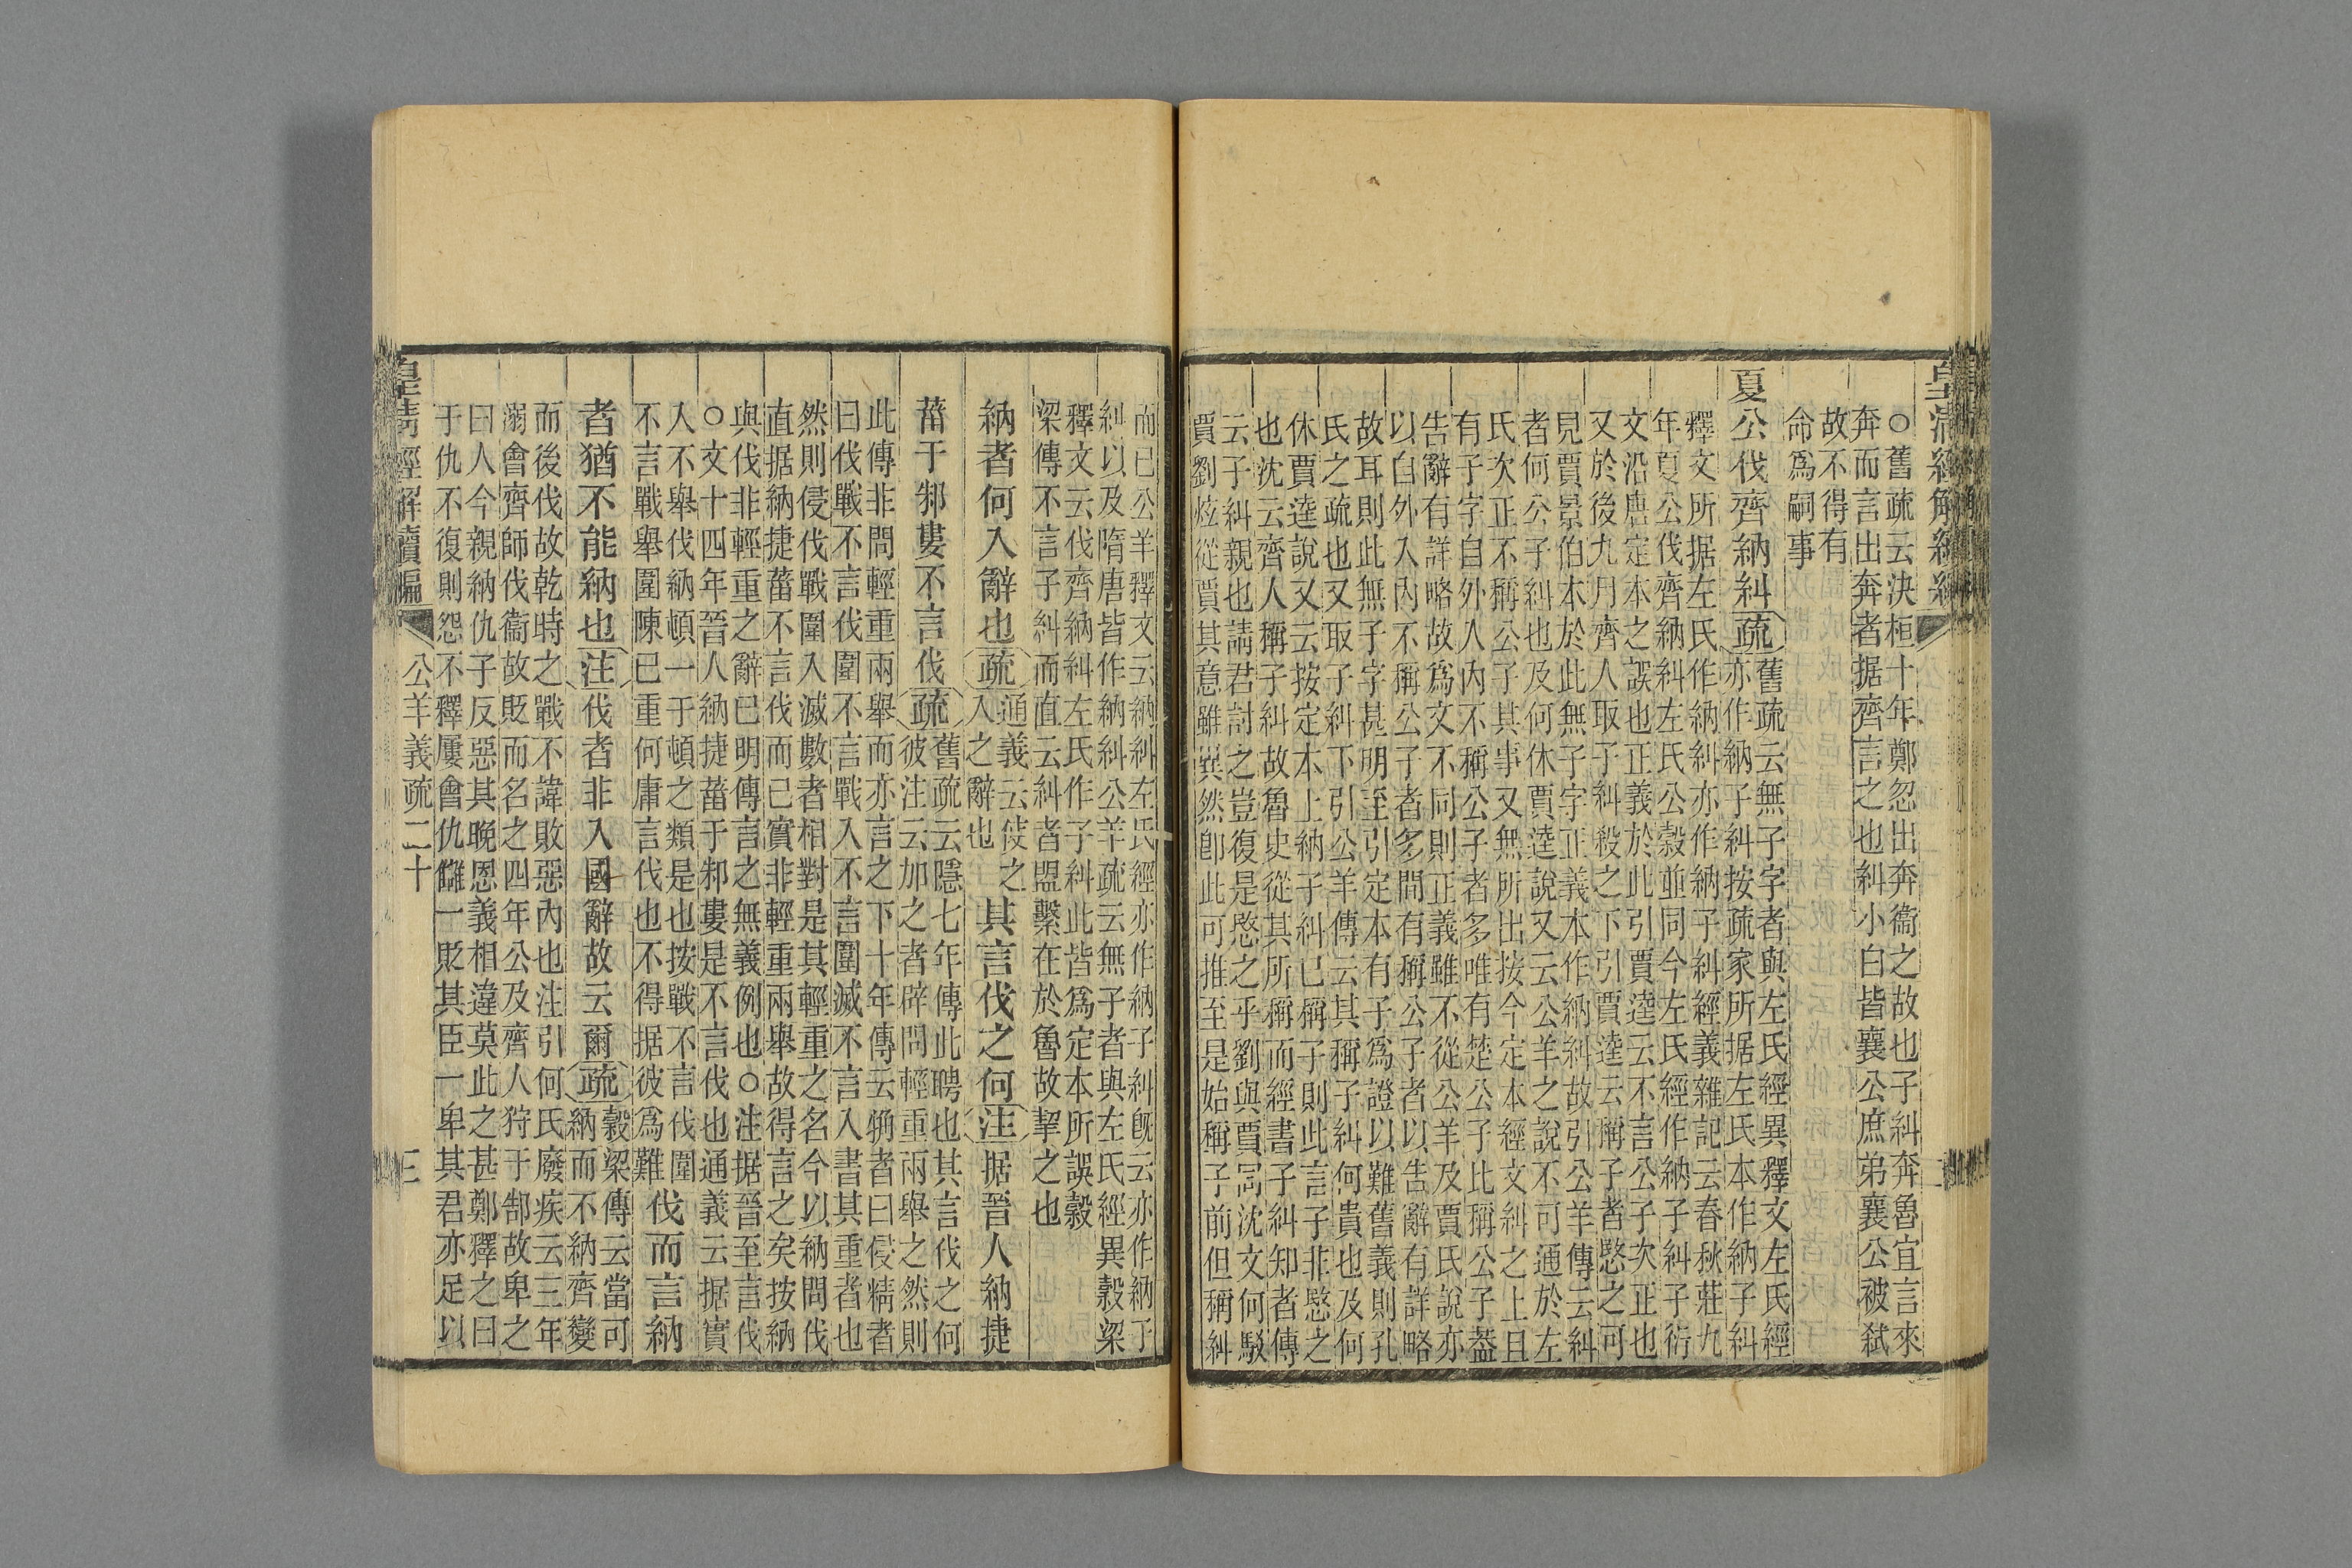 皇清經解續編
○舊疏云決桓十年鄭忽出奔衞之故也子糾奔魯宜言來
奔而言出奔者据齊言之也糾小白皆襄公庶弟襄公被弒
故不得有
命爲嗣事
夏公伐齊納糾疏舊疏云無子字者與左氏經異釋文左氏經
亦作納子糾按疏家所据左氏本作納子糾
釋文所据左氏作納糾亦作納子糾經義雜記云春秋莊九
年夏公伐齊納糾左氏公穀並同今左氏經作納子糾子衍
文沿唐定本之誤也正義於此引賈逵云不言公子次正也
又於後九月齊人取子糾殺之下引賈逵云稱子者愍之可
見賈景伯本於此無子字正義本作納糾故引公羊傳云糾
者何公子糾也及何休賈逵說又云公羊之說不可通於左
氏次正不稱公子其事又無所出按今定本經文糾之上且
有子字自外入內不稱公子者多唯有楚公子比稱公子蓋
告辭有詳略故爲文不同則正義雖不從公羊及賈氏說亦
以白外入內不稱公子者多間有稱公子者以告辭有詳略
故耳則此無子字甚明至引定本有子爲證以難舊義則孔
氏之疏也又取子糾下引公羊傳云其稱子糾何貴也及何
休賈逵說又云按定本上納子糾已稱子則此言子非愍之
也沈云齊人稱子糾故魯史從其所稱而經書子糾知者傳
云子糾親也請君討之豈復是愍之乎劉與賈同沈文何駁
賈劉炫從賈其意雖異然卽此可推至是始稱子前但稱糾
而已公羊釋文云納糾左氏經亦作納子糾旣云亦作納子
糾以及隋唐皆作納糾公羊疏云無子者與左氏經異穀梁
釋文云伐齊納糾左氏作子糾此皆爲定本所誤穀
梁傳不言子糾而直云糾者盟繫在於魯故挈之也
納者何入辭也疏通義云使之
入之辭也其言伐之何注据晉人納捷
菑于邾婁不言伐疏舊疏云隱七年傳此聘也其言伐之何
彼注云加之者辟問輕重兩舉之然則
此傳非問輕重兩舉而亦言之下十年傳云觕者曰侵精者
曰伐戰不言伐圍不言戰入不言圍滅不言入書其重者也
然則侵伐戰圍入滅數者相對是其輕重之名今以納問伐
直据納捷菑不言伐而已實非輕重兩舉故得言之矣按納
與伐非輕重之辭已明傳言之無義例也○注据晉至言伐
○文十四年晉人納捷菑于邾婁是不言伐也通義云据實
人不舉伐納頓一于頓之類是也按戰不言伐圍
不言戰舉圍陳已重何庸言伐也不得据彼爲難伐而言納
者猶不能納也注伐者非入國辭故云爾疏穀梁傳云當可
納而不納齊變
而後伐故乾時之戰不諱敗惡內也注引何氏廢疾云三年
溺會齊師伐衞故貶而名之四年公及齊人狩于郜故卑之
曰人今親納仇子反惡其晚恩義相違莫此之甚鄭釋之曰
于仇不復則怨不釋屢會仇讎一貶其臣一卑其君亦足以
皇淸經解續編
公羊義疏二十
三